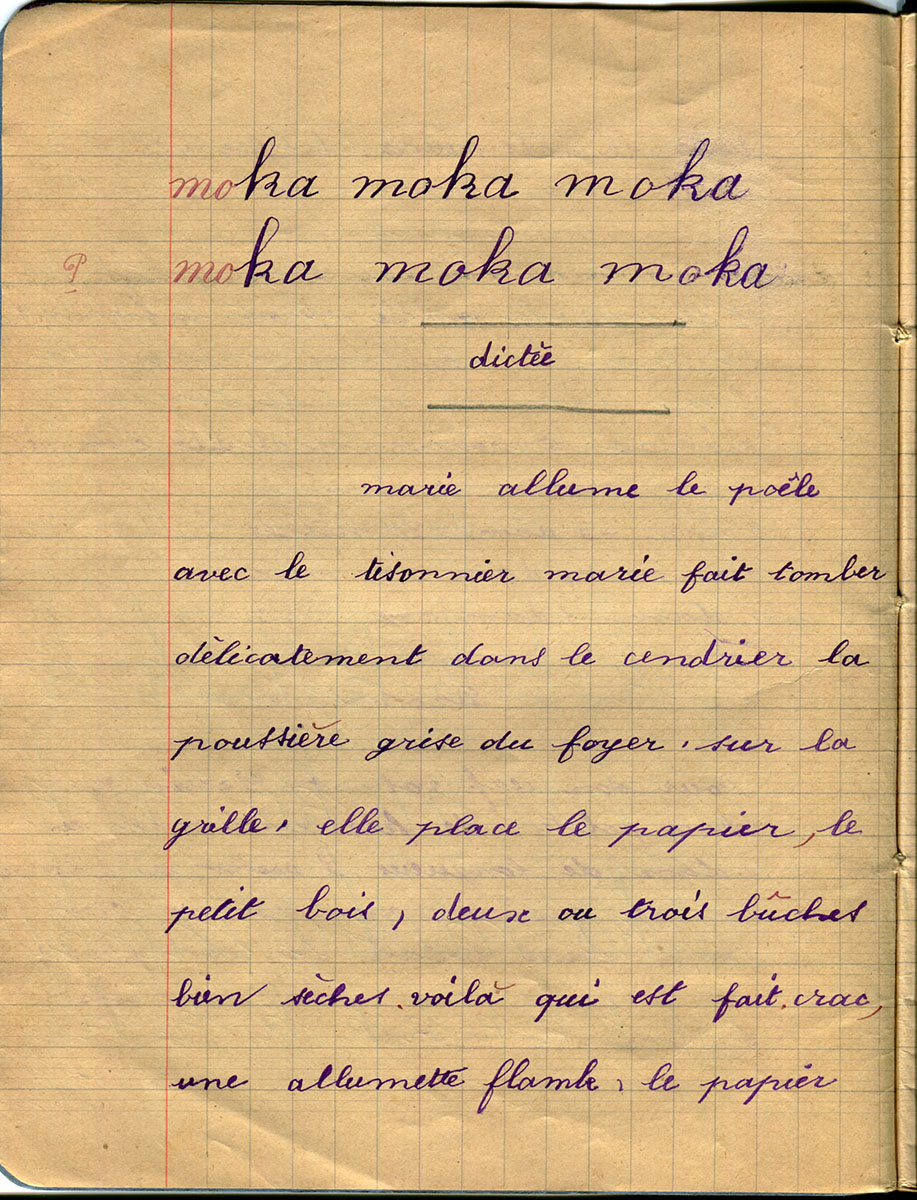 moka moka moka
P moka moka moka
dictée
marie allume le poêle
avec le tisonnier marie fait tomber
délicatement dans le cendrier la
poussière grise du foyer. sur la
grille, elle place le papier, le
petit bois, deux ou trois bûches
bien sèches. voilà qui est fait. crac,
une allumette flambe, le papier